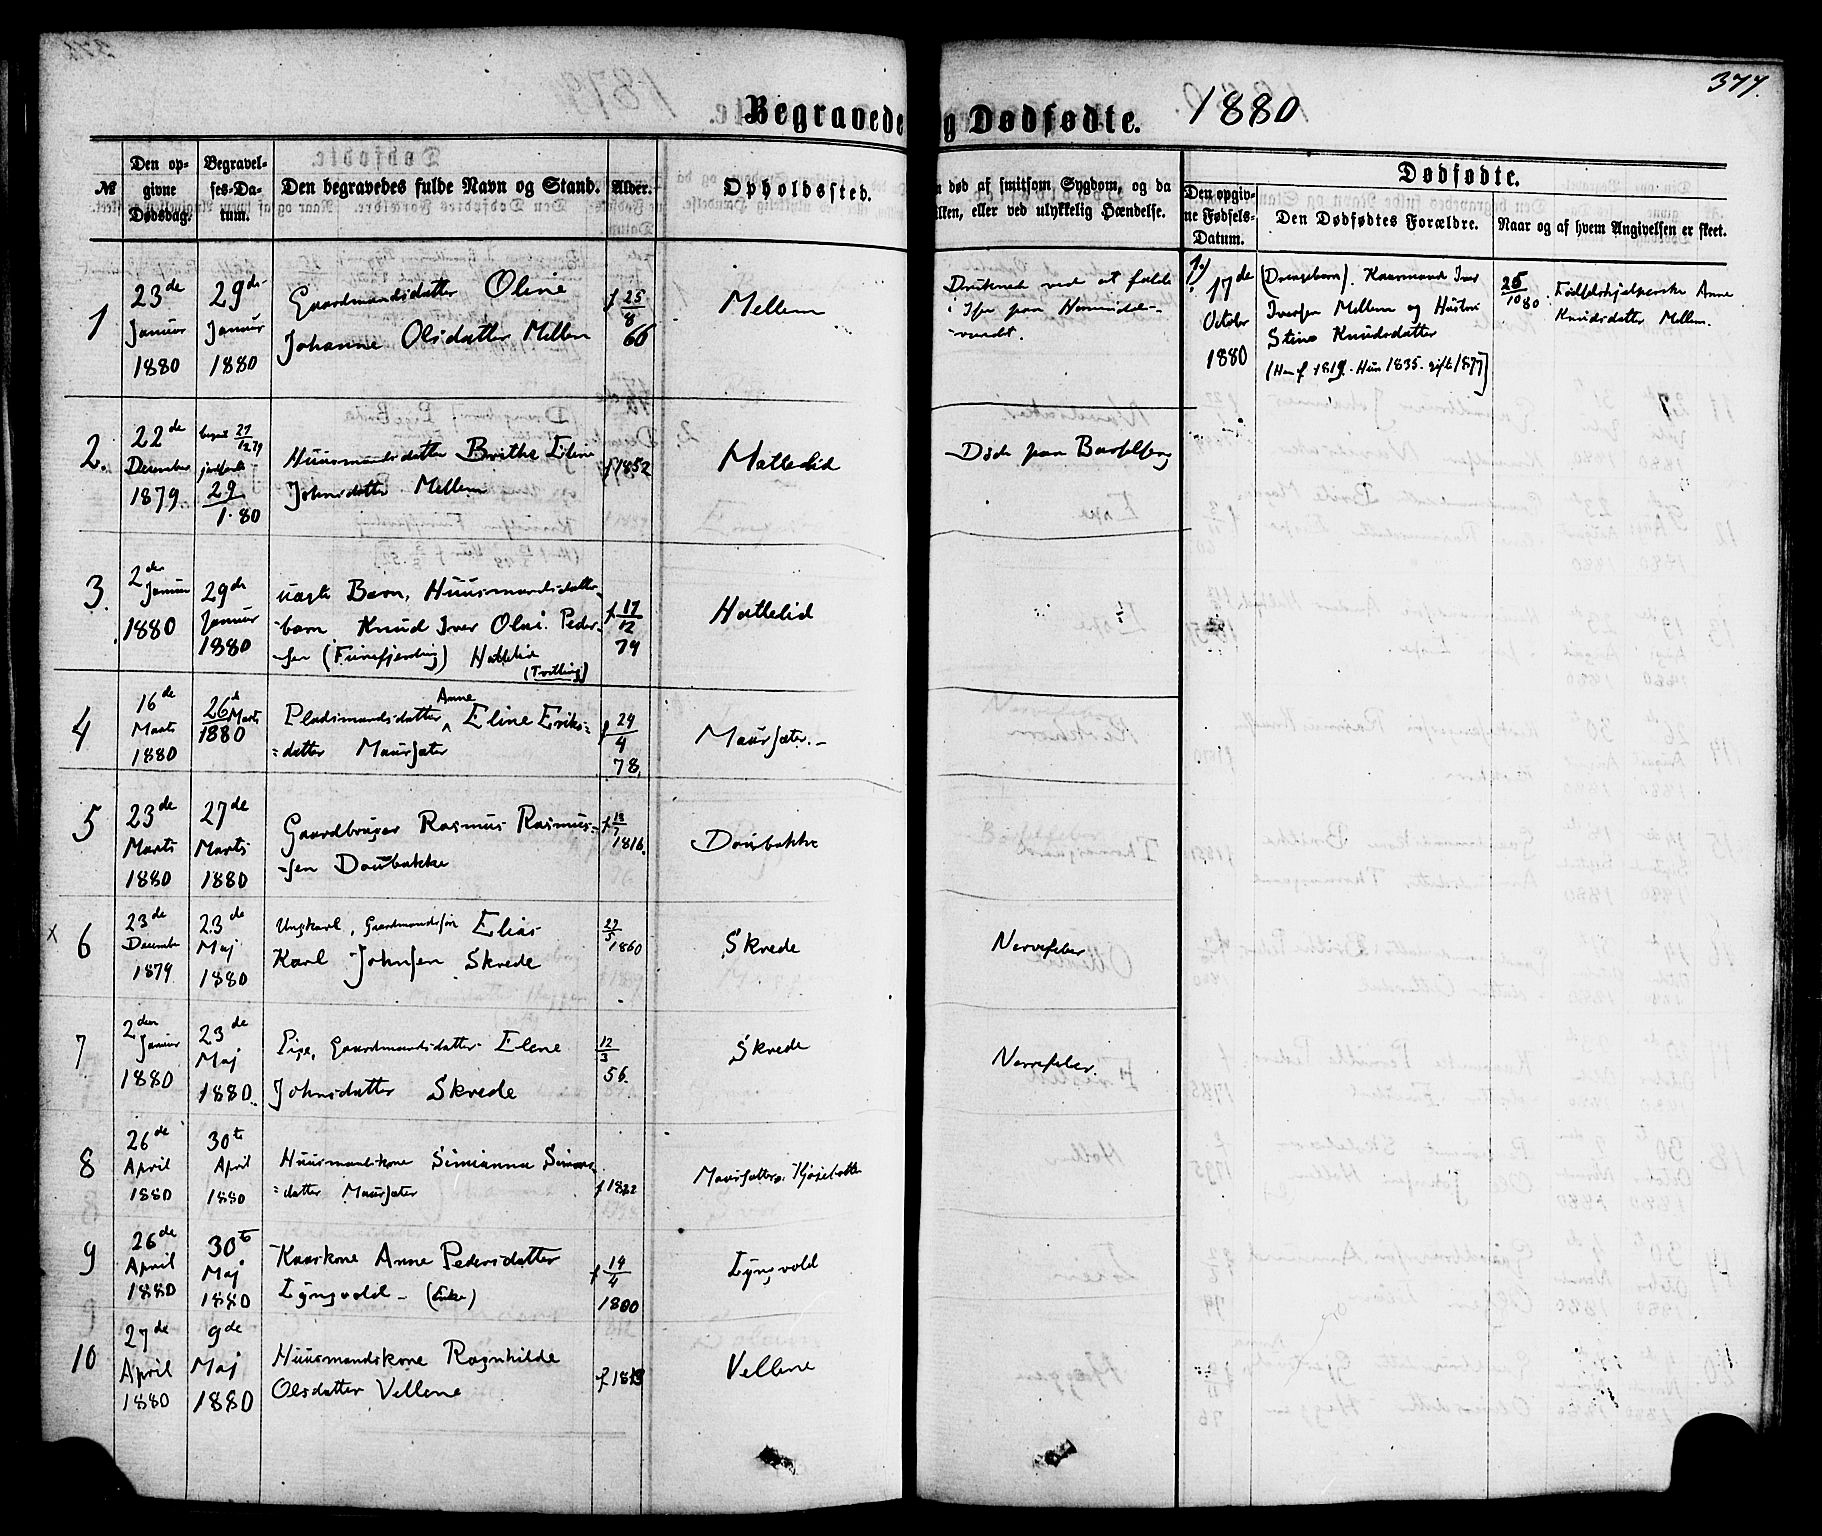 377.
Begravede og Dødfødte. 1880
№
Den op-
givne
Dødsdag.
Begravel-
ses-Da-
tum.
Den begravedes fulde Navn og Stand.
Alder.
Opholdssted.
død af smitsom Sygdom, og da
ilken, eller ved ulykkelig Hændelse.
Dødfødte.
Den opgiv-
ne Fødsels-
Datum.
Den Dødfødtes Forældre.
Naar og af hvem Angivelsen er skeet.
1
23de
Januar
1880
29de
Januar
1880
Gaardmandsdatter Oline
Johanne Olsdatter Mellem
f 25/8
66
Mellem
Druknede ved at falde
i Isen paa Hornindals-
vandet.
1)
17de
October
1880
(Drengebarn). Kaarmand Iver
Iversen Mellem og Hustru
Stine Knudsdatter
(Han f 1819. Hun 1835. gifte 1877)
25/10 80.
Fødselshjelperske Anne
Knudsdatter Mellem.
2.
22de
December
1879
begravet 27/12 79
jordfæstet
29/1. 80
Huusmandsdatter Brithe Eline
Johnsdatter Mellem
f 1852
Hattelid
Døde paa Barselseng
3.
2den Januar
1880
29de
Januar
1880
uægte Barn, Huusmandsdatter-
barn Knud Iver Olai Peder-
-sen Hattelid
(Tvilling)
f 17/12
79
Hattelid
4
16de
Marts
1880
26d Marts
1880
Pladsmandsdatter Anne Eline Eriks-
=datter Maursæter
f 24/4
78.
Maursæter.-
5
23de
Marts
1880
27de
Marts
1880
Gaardbruger Rasmus Rasmus-
-sen Doubakke
f 18/7
1816.
Doubakke
x 6
23de
December
1879
23de
Maj
1880
Ungkarl, Gaardmandssøn Elias
Karl Johnsen Skrede
27/5 1860
Skrede
Nervefeber
7
2den
Januar
1880
23de
Maj
1880.
Pige, Gaardmandsdatter Elene
Johnsdatter Skrede
12/3
56.
Skrede
Nervefeber.
8
26de
April
1880
30te
April
1880
Huusmandskone Simianna Simons-
=datter Maursæter
f 1822
9
26de
April
1880
30te
Maj
1880
Kaarkone Anne Pedersdatter
Lyngvold - (Enke)
f 14/4
1800
Lyngvold
10
27de
April
1880
9de
Maj
1880
Huusmandskone Ragnhilde
Olsdatter Vellene
f 1813
Vellene